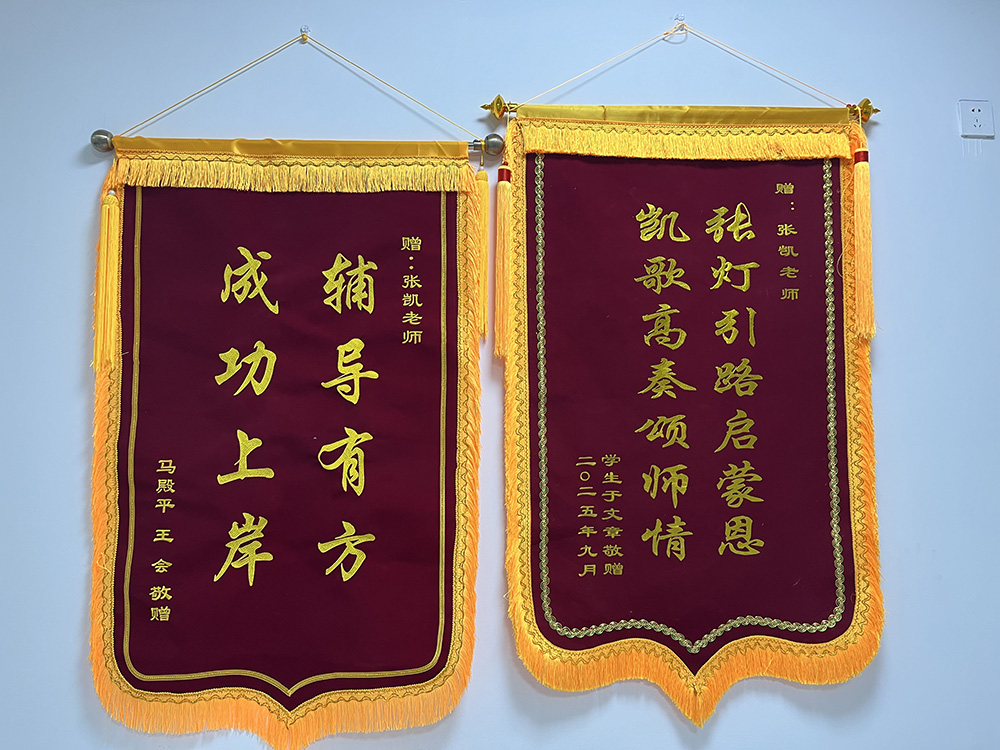 赠：张凯老师
辅导有方
成功上岸
马殿平 王会 敬赠
赠：张凯老师
张灯引路启蒙恩
凯歌高奏颂师情
学生于文章敬赠
二〇二五年九月